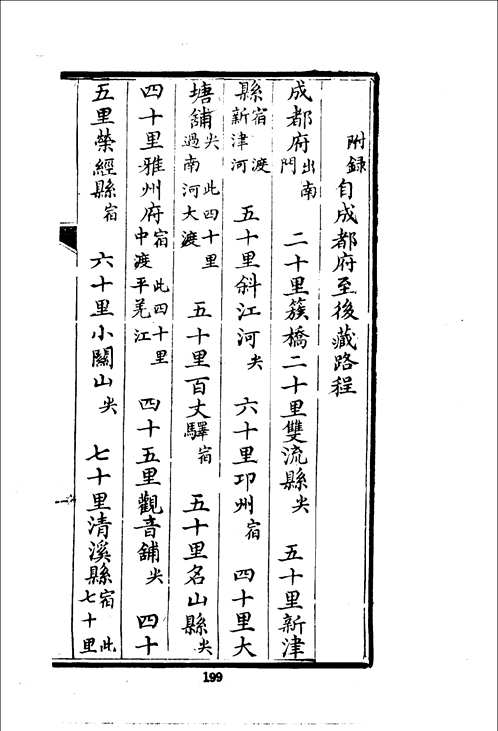 附錄自成都府至後藏路程
成都府出南門 二十里簇橋二十里雙流縣尖 五十里新津
縣宿渡新津河 五十里斜江河尖 六十里邛州宿 四十里大
塘舖尖此四十里過南河大渡 五十里百丈驛宿 五十里名山縣尖
四十里雅州府宿此四十里中渡平羌江 四十五里觀音舖尖 四十
五里榮經縣宿 六十里小關山尖 七十里清溪縣宿此七十里
199